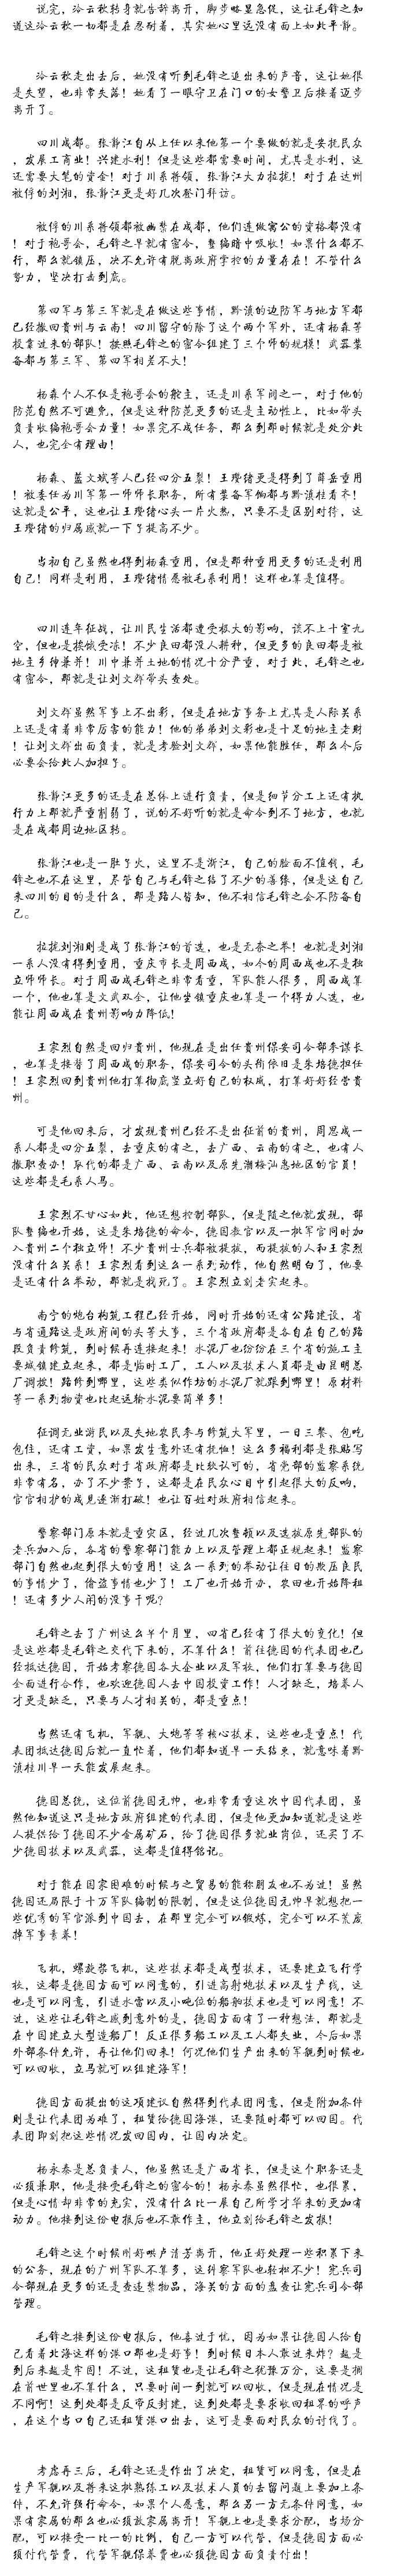 说完，泠云秋转身就告辞离开，脚步略显急促，这让毛锋之知
道这泠云秋一切都是在忍耐着，其实她心里远没有面上如此平静。
泠云秋走出去后，她没有听到毛锋之追出来的声音，这让她很
是失望，也非常失落！她看了一眼守卫在门口的女警卫后接着迈步
离开了。
四川成都。张静江自从上任以来他第一个要做的就是安抚民众
，发展工商业！兴建水利！但是这些都需要时间，尤其是水利，这
还需要大笔的资金！对于川系将领，张静江大力拉拢！对于在达州
被俘的刘湘，张静江更是好几次登门拜访。
被俘的川系将领都被幽禁在成都，他们连做寓公的资格都没有
！对于袍哥会，毛锋之早就有密令，整编暗中吸收！如果什么都不
行，那么就镇压，决不允许有脱离政府掌控的力量存在！不管什么
势力，坚决打击到底。
第四军与第三军就是在做这些事情，黔滇的边防军与地方军都
已经撤回贵州与云南！四川留守的除了这个两个军外，还有杨森等
投靠过来的部队！按照毛锋之的密令组建了三个师的规模！武器装
备都与第三军、第四军相差不大！
杨森个人不仅是袍哥会的舵主，还是川系军阀之一，对于他的
防范自然不可避免，但是这种防范更多的还是主动性上，比如带头
负责收编袍哥会力量！如果完不成任务，那么到那时候就是处分此
人，也完全有理由！
杨森、蓝文斌等人已经四分五裂！王瓒绪更是得到了薛岳重用
！被委任为川军第一师师长职务，所有装备军饷都与黔滇桂看齐！
这就是公平，这也让王瓒绪心头一片火热，只要不是区别对待，这
王瓒绪的归属感就一下子提高不少。
当初自己虽然也得到杨森重用，但是那种重用更多的还是利用
自己！同样是利用，王瓒绪情愿被毛系利用！这样也算是值得。
四川连年征战，让川民生活都遭受很大的影响，谈不上十室九
空，但也是挨饿受冻！不少良田都没人耕种，但更多的良田都是被
地主乡绅兼并！川中兼并土地的情况十分严重，对于此，毛锋之也
有密令，那就是让刘文辉带头查处。
刘文辉虽然军事上不出彩，但是在地方事务上尤其是人际关系
上还是有着非常厉害的能力！他的弟弟刘文彩也是十足的地主老财
！让刘文辉出面负责，就是考验刘文辉，如果他能胜任，那么今后
必要会给此人加担子。
张静江更多的还是在总体上进行负责，但是细节分工上还有执
行力上那就严重削弱了，说的不好听的就是命令到不了地方，也就
是在成都周边地区转。
张静江也是一肚子火，这里不是浙江，自己的脸面不值钱，毛
锋之也不在这里，尽管自己与毛锋之结了不少的善缘，但是这自己
来四川的目的是什么，那是路人皆知，他不相信毛锋之会不防备自
己。
拉拢刘湘则是成了张静江的首选，也是无奈之举！也就是刘湘
一系人没有得到重用，重庆市长是周西成，如今的周西成也不是独
立师师长。对于周西成毛锋之非常看重，军队能人很多，周西成算
一个，他也算是文武双全，让他坐镇重庆也算是一个得力人选，也
能让周西成在贵州影响力降低！
王家烈自然是回归贵州，他现在是出任贵州保安司令部参谋长
，也算是接替了周西成的职务，保安司令的头衔依旧是朱培德担任
！王家烈回到贵州他打算彻底竖立好自己的权威，打算好好经营贵
州。
可是他回来后，才发现贵州已经不是出征前的贵州，周恩成一
系人都是四分五裂，去重庆的有之，去广西、云南的有之，也有人
撤职查办！取代的都是广西、云南以及原先潮梅汕惠地区的官员！
这些都是毛系人马。
王家烈不甘心如此，他还想控制部队，但是随之他就发现，部
队整编也开始，这是朱培德的命令，德国教官以及一批军官同时加
入贵州二个独立师！不少贵州士兵都被提拔，而提拔的人和王家烈
没有什么关系！王家烈看到这么一系列动作，他自然明白了，他要
是还有什么举动，那就是找死了。王家烈立刻老实起来。
南宁的炮台构筑工程已经开始，同时开始的还有公路建设，省
与省通路这是政府间的头等大事，三个省政府都是各自在自己的路
段负责修筑，到时候再连接起来！水泥厂也纷纷在三个省的施工主
要城镇建立起来，都是临时工厂，工人以及技术人员都是由昆明总
厂调拨！路修到哪里，这些类似作坊的水泥厂就跟到哪里！原材料
等一系列物资也比起运输水泥要简单多！
征调无业游民以及失地农民参与修筑大军里，一日三餐、包吃
包住，还有工资，如果发生意外还有抚恤！这么多福利都是张贴写
出来，三省的民众对于省政府都是比较认可的，省党部的监察系统
非常有名，办了不少案子，这都是在民众心目中引起很大的反响，
官官相护的成见逐渐打破！也让百姓对政府相信起来。
警察部门原本就是重灾区，经过几次整顿以及选拔原先部队的
老兵加入后，各省的警察部门能力上以及管理上都正规起来！监察
部门自然也起到很大的重用！这么一系列的举动让往日的欺压良民
的事情少了，偷盗事情也少了！工厂也开始开办，农田也开始降租
！还有多少人闲的没事干呢？
毛锋之去了广州这么半个月里，四省已经有了很大的变化！但
是这些都是毛锋之交代下来的，不算什么！前往德国的代表团也已
经抵达德国，开始考察德国各大企业以及军校，他们打算要与德国
全面进行合作，也欢迎德国人去中国投资工作！人才缺乏，培养人
才更是缺乏，只要与人才相关的，都是重点！
当然还有飞机，军舰、大炮等等核心技术，这些也是重点！代
表团抵达德国后就一直忙着，他们都知道早一天结束，就意味着黔
滇桂川早一天能发展起来。
德国总统，这位前德国元帅，也非常看重这次中国代表团，虽
然他知道这只是地方政府组建的代表团，但是他更加知道就是这些
人提供给了德国不少金属矿石，给了德国很多就业岗位，还买了不
少德国技术以及武器，这都是值得铭记。
对于能在国家困难的时候与之贸易的能称朋友也不为过！虽然
德国还局限于十万军队编制的限制，但是这位德国元帅早就想把一
些优秀的军官派到中国去，在那里完全可以锻炼，完全可以不荒废
掉军事素养！
飞机，螺旋桨飞机，这些技术都是成型技术，还要建立飞行学
校，这都是德国方面可以同意的，引进高射炮技术以及生产线，这
也是可以同意，引进水雷以及小吨位的船舶技术也是可以同意！不
过，这些让毛锋之感到意外的是，德国方面有了一种想法，那就是
在中国建立大型造船厂！反正很多船工以及工人都失业，今后如果
外部条件允许，再让他们回来！何况他们生产出来的军舰到时候也
可以回收，立马就可以组建海军！
德国方面提出的这项建议自然得到代表团同意，但是附加条件
则是让代表团为难了，租赁给德国海港，还要随时都可以回国。代
表团即刻把这些情况发回国内，让国内决定。
杨永泰是总负责人，他虽然还是广西省长，但是这个职务还是
必须兼职，他是接受毛锋之的密令的！杨永泰虽然很忙，也很累，
但是心情却非常的充实，没有什么比一展自己所学才华来的更加有
动力。他接到这份电报后也不敢作主，他立刻给毛锋之发报！
毛锋之这个时候刚好哄卢清芳离开，他正好处理一些积累下来
的公务，现在的广州军队不算多，这科察军队也轻松不少！宪兵司
令部现在更多的还是查违禁物品，海关的方面的盘查让宪兵司令部
管理。
毛锋之接到这份电报后，他喜过于忧，因为如果让德国人给自
己看着北海这样的港口那也是好事！到时候日本人敢过来炸？越是
到后来越是牢固！不过，这租赁也是让毛锋之犹豫万分，这要是搁
在前世里也不算什么，只要时间一到就可以回收，但是现在情况是
不同啊！这到处都是反帝反封建，这到处都是要求收回租界的呼声
，在这个当口自己还租赁港口出去，这可是要面对民众的讨伐了。
考虑再三后，毛锋之还是作出了决定，租赁可以同意，但是在
生产军舰以及将来这批熟练工以及技术人员的去留问题上要加上条
件，不允许强行命令，如果个人愿意，那么另一方无条件同意，如
果有家属的那么也必须放家属离开！军舰上也是要求分配，当场分
配，可以接受一比一的比例，自己一方可以代管，但是德国方面必
须付代管费，代管军舰保养费也必须德国方面负责付出！